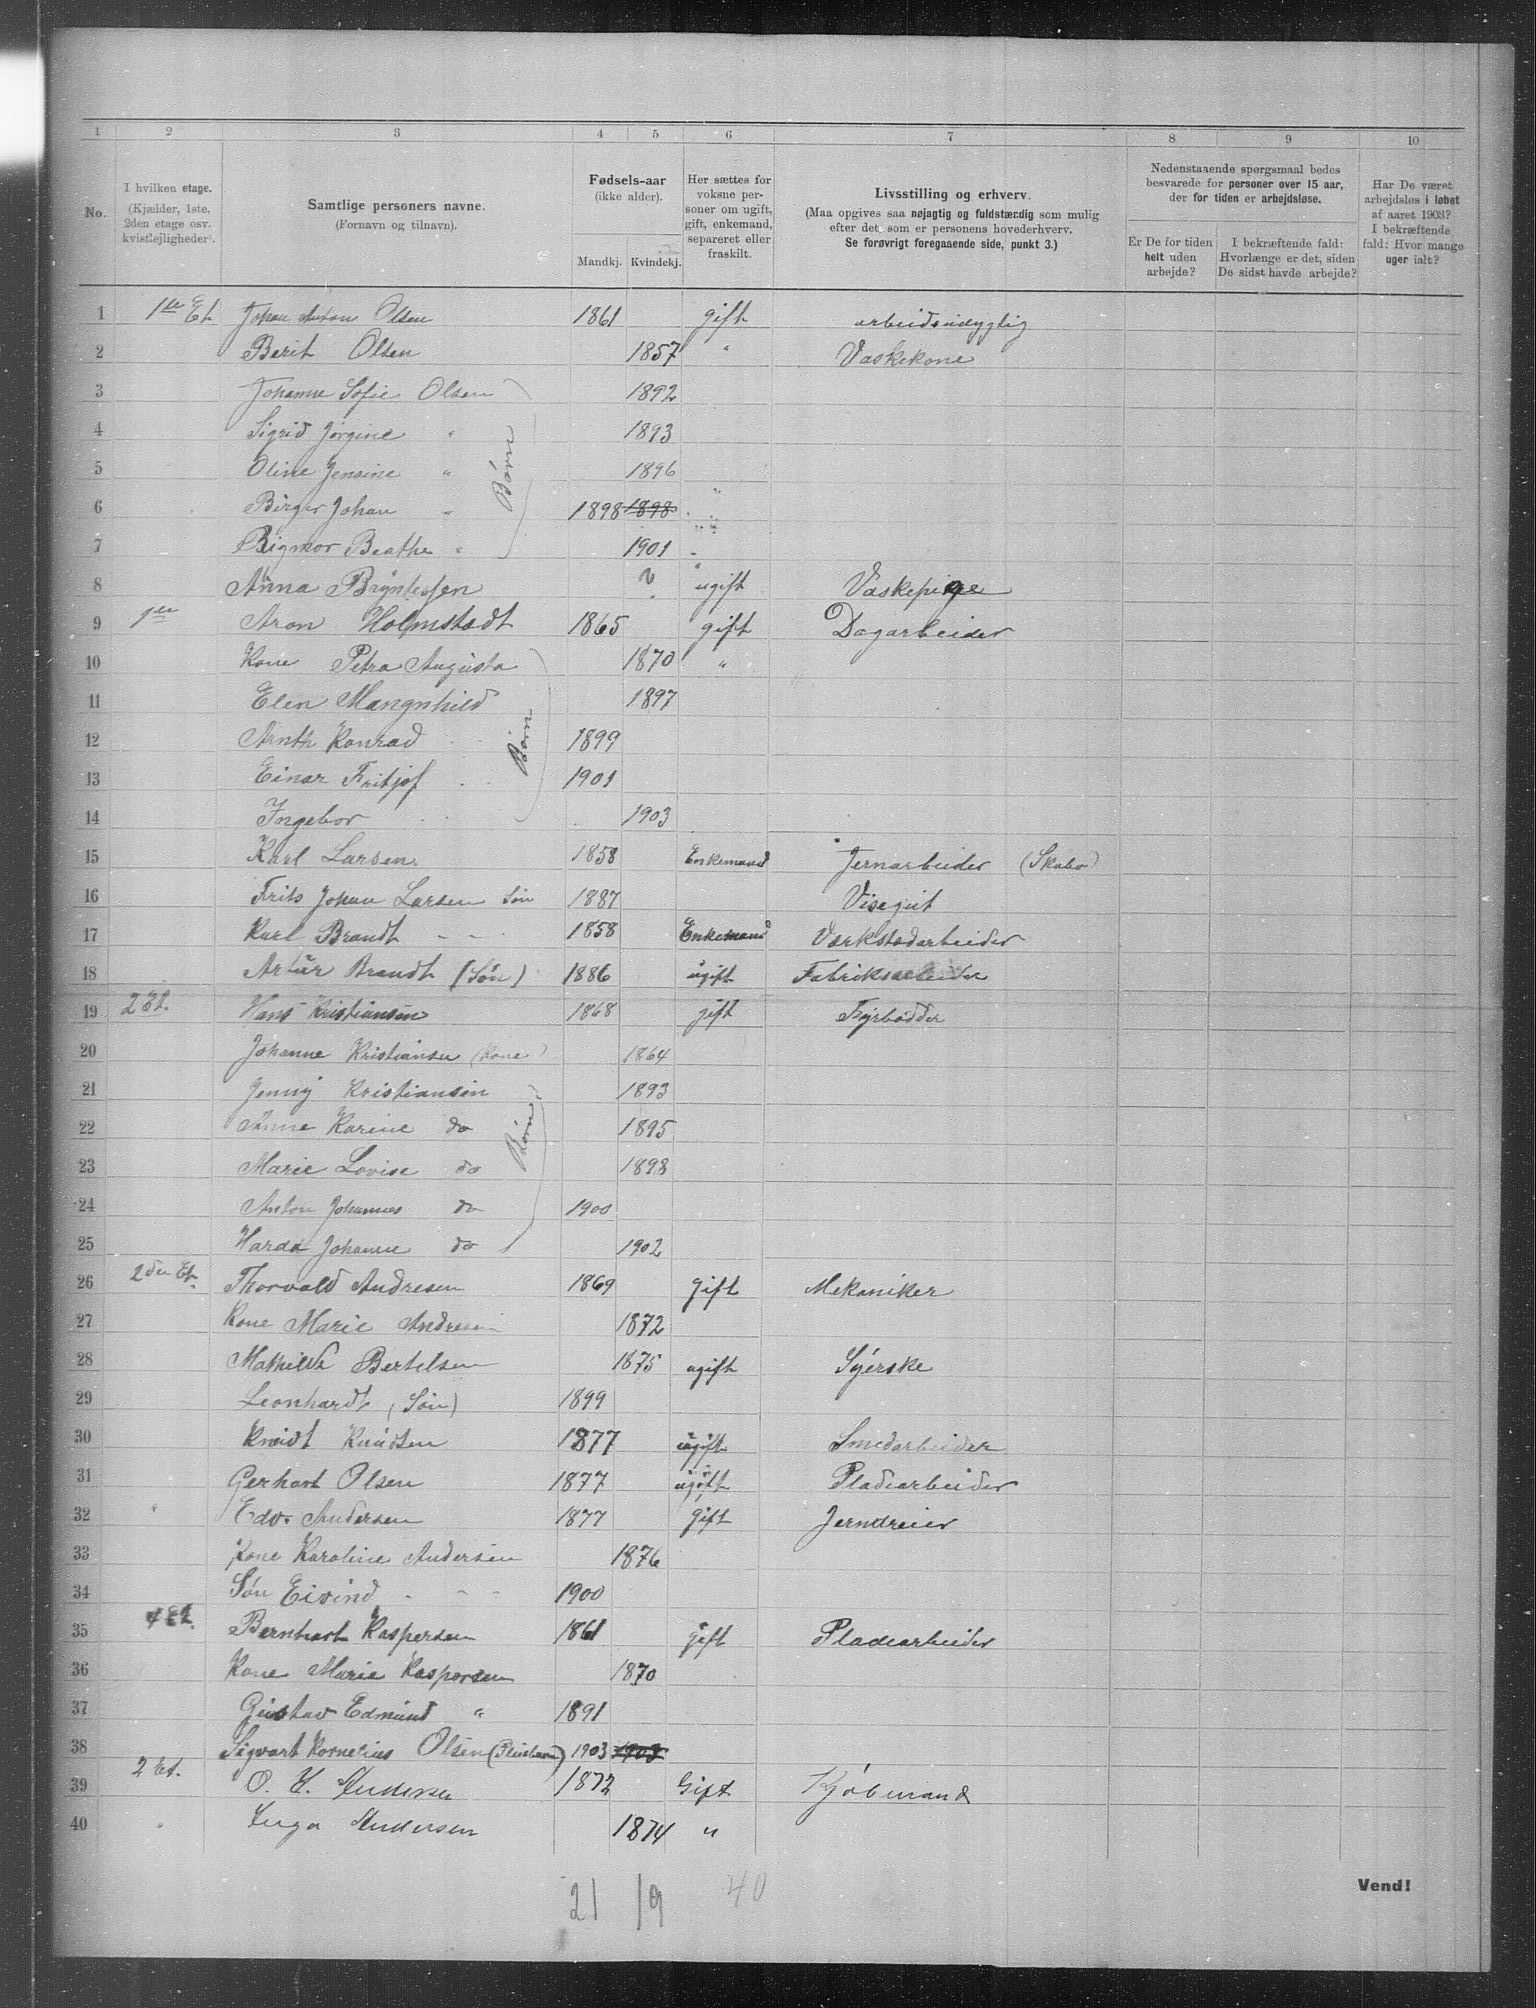 1 2 3 4 5 6 7 8 9 10
No.
I hvilken etage. (Kjælder, 1ste, 2den etage osv. kvistlejligheder).
Samtlige personers navne. (Fornavn og tilnavn).
Fødsels-aar (ikke alder). Mandkj. Kvindekj.
Her sættes for voksne personer om ugift, gift, enkemand, separeret eller fraskilt.
Livsstilling og erhverv. (Maa opgives saa nøjagtig og fuldstændig som mulig efter det, som er personens hovederhverv. Se forøvrigt foregaaende side, punkt 3.)
Nedenstaaende spørgsmaal bedes besvarede for personer over 15 aar, der for tiden er arbejdsløse.
Er De for tiden helt uden arbejde?
I bekræftende fald: Hvorlænge er det, siden De sidst havde arbejde?
Har De været arbejdsløs i løbet af aaret 1903? I bekræftende fald: Hvor mange uger ialt?
1 1ste Et. Johan Anton Olsen 1861 gift arbeidsudygtig
2 Berit Olsen 1857 " Vaskekone
3 Johanne Sofie Olsen 1892
4 Sigrid Jørgine " 1893
5 Oline Jensine " 1896
Børn
6 Birger Johan " 1898 1898
7 Rigmor Beathe " 1901
8 Anna Bryntesen ? ugift Vaskepige
9 1ste Aron Holmstadt 1865 gift Dagarbeider
10 Kone Petra Augusta 1870 "
11 Elen Mangnhild 1897
12 Arnth Konrad 1899
Børn
13 Einar Fritjof 1901
14 Ingebor 1903
15 Karl Larsen 1858 Enkemand Jernarbeider (Skabo)
16 Frits Johan Larsen Søn 1887 Visegut
17 Karl Brandt 1858 Enkemand Værkstadarbeider
18 Artur Brandt (Søn) 1886 ugift Fabriksarbeider
19 2 Et. Hans Kristiansen 1868 gift Fyrbødder
20 Johanne Kristiansen (Kone) 1864
21 Jenny Kristiansen 1893
22 Anne Karine do 1895
Børn
23 Marie Lovise do 1898
24 Anton Johannes do 1900
25 Harda Johanne do 1902
26 2den Et. Thorvald Andresen 1869 gift Mekaniker
27 Kone Marie Andresen 1872
28 Mathilde Bertelsen 1875 ugift Syerske
29 Leonhardt (Søn) 1899
30 Knudt Knudsen 1877 ugift Smedarbeider
31 Gerhart Olsen 1877 ugift Pladearbeider
32 " Edv. Andersen 1877 gift Jerndreier
33 Kone Karoline Andersen 1876
34 Søn Eivind 1900
35 4 Et. Bernhart Kaspersen 1861 gift Pladearbeider
36 Kone Marie Kaspersen 1870
37 Gustav Edmund " 1891
38 Sigvart Kornelius Olsen (Pleiebarn) 1903 1903
39 2 Et. O. H. Andersen 1872 Gift Kjøbmand
40 " Inga Andersen 1874 "
21 19 40
Vend!